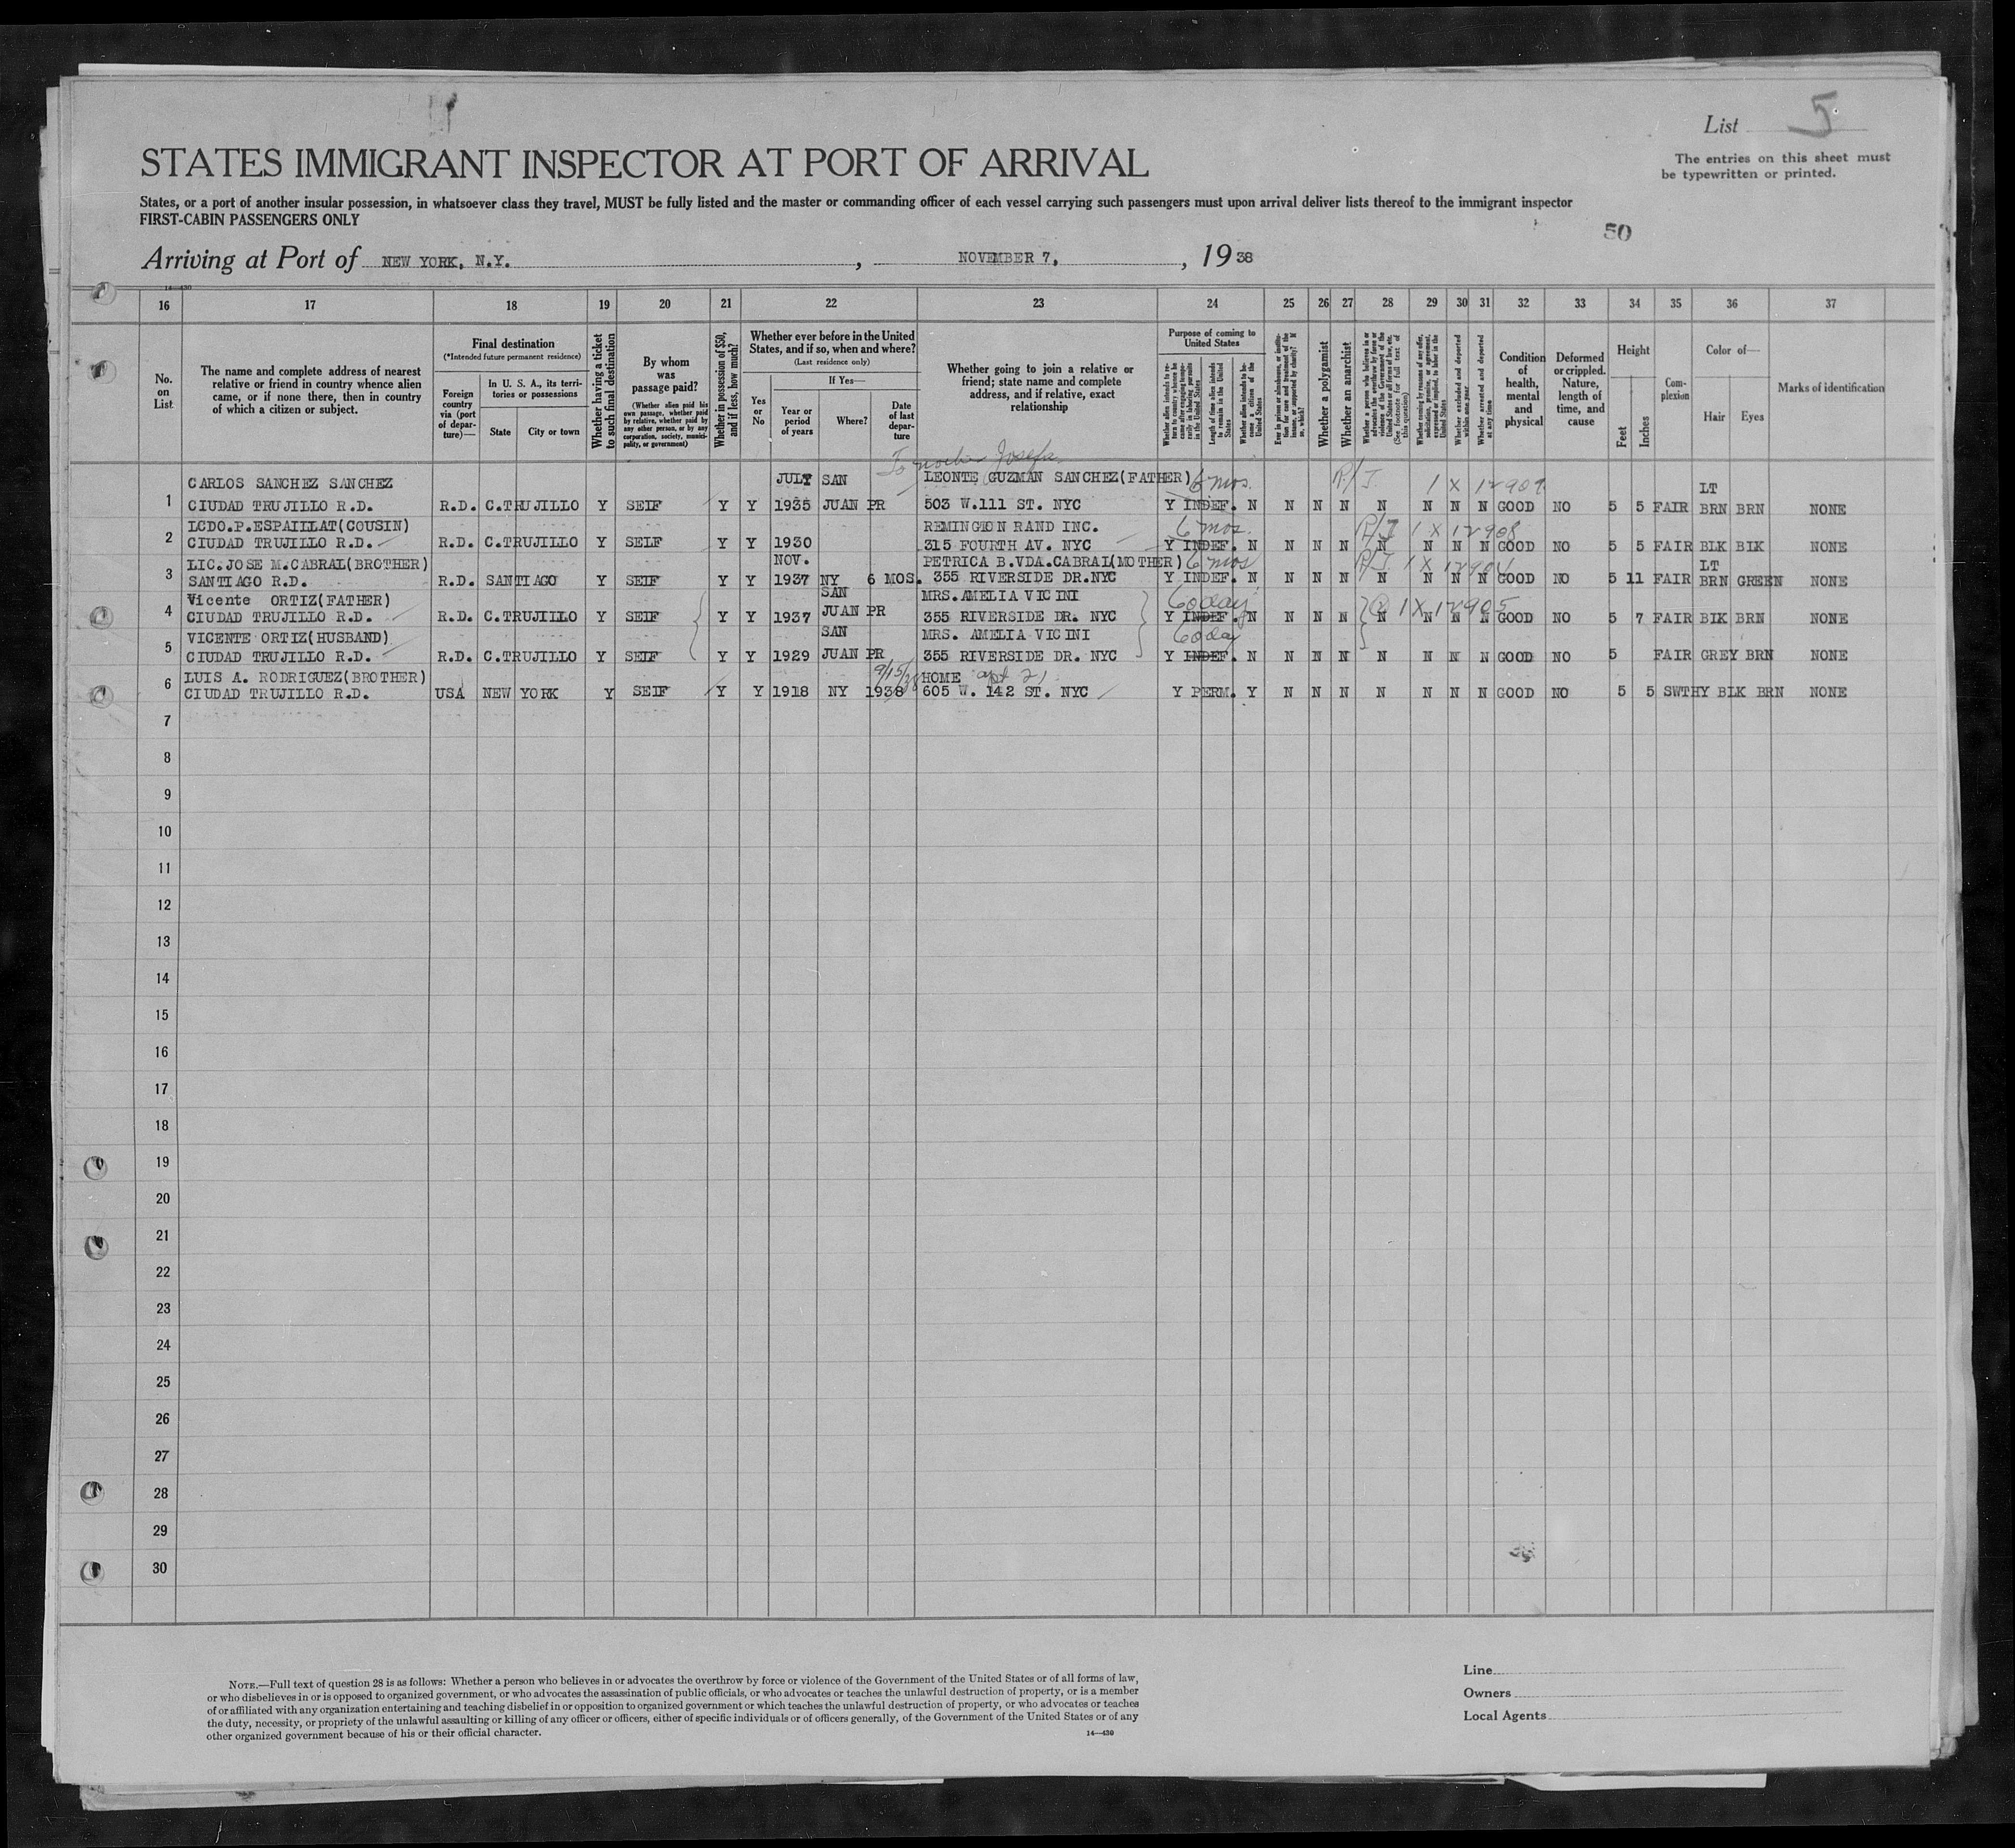 List 5
STATES IMMIGRANT INSPECTOR AT PORT OF ARRIVAL
The entries on this sheet must
be typewritten or printed.
States, or a port of another insular possession, in whatsoever class they travel, MUST be fully listed and the master or commanding officer of each vessel carrying such passengers must upon arrival deliver lists thereof to the immigrant inspector
FIRST-CABIN PASSENGERS ONLY
50
Arriving at Port of NEW YORK, N.Y. , NOVEMBER 7, , 19 38
14—430
16 17 18 19 20 21 22 23 24 25 26 27 28 29 30 31 32 33 34 35 36 37
No. on List
The name and complete address of nearest relative or friend in country whence alien came, or if none there, then in country of which a citizen or subject.
Final destination
(*Intended future permanent residence)
Foreign country via (port of departure)—
In U. S. A., its territories or possessions
State
City or town
Whether having a ticket to such final destination
By whom was passage paid?
(Whether alien paid his own passage, whether paid by relative, whether paid by any other person, or by any corporation, society, municipality, or government)
Whether in possession of $50, and if less, how much?
Whether ever before in the United States, and if so, when and where?
(Last residence only)
Yes or No
If Yes—
Year or period of years
Where?
Date of last departure
Whether going to join a relative or friend; state name and complete address, and if relative, exact relationship
Purpose of coming to United States
Length of time alien intends to remain in the United States
Whether alien intends to become a citizen of the United States
Whether a polygamist
Whether an anarchist
(See footnote for full text of this question)
Whether excluded and deported within one year
Whether arrested and deported at any time
Condition of health, mental and physical
Deformed or crippled. Nature, length of time, and cause
Height
Feet
Inches
Complexion
Color of—
Hair
Eyes
Marks of identification
To mother Josefa
CARLOS SANCHEZ SANCHEZ JULY SAN LEONTE GUZMAN SANCHEZ(FATHER) 6 mos. R/J. LT
1 CIUDAD TRUJILLO R.D. R.D. C.TRUJILLO Y SELF Y Y 1935 JUAN PR 503 W.111 ST. NYC Y INDEF. N N N N N N N N GOOD NO 5 5 FAIR BRN BRN NONE
LCDO.P.ESPAILLAT(COUSIN) REMINGTON RAND INC. 6 mos. R/J 1 X 12908
2 CIUDAD TRUJILLO R.D. R.D. C.TRUJILLO Y SELF Y Y 1930 315 FOURTH AV. NYC Y INDEF. N N N N N N N N GOOD NO 5 5 FAIR BLK BLK NONE
LIC.JOSE M.CABRAL(BROTHER) NOV. PETRICA B.VDA.CABRAL(MOTHER) 6 mos R/J. LT
3 SANTIAGO R.D. R.D. SANTIAGO Y SELF Y Y 1937 NY 6 MOS. 355 RIVERSIDE DR.NYC Y INDEF. N N N N N N N N GOOD NO 5 11 FAIR BRN GREEN NONE
Vicente ORTIZ(FATHER) SAN MRS.AMELIA VICINI 60 day 1 X 12905
4 CIUDAD TRUJILLO R.D. R.D. C.TRUJILLO Y SELF Y Y 1937 JUAN PR 355 RIVERSIDE DR. NYC Y INDEF. N N N N N N N N GOOD NO 5 7 FAIR BLK BRN NONE
VICENTE ORTIZ(HUSBAND) SAN MRS. AMELIA VICINI 60 day
5 CIUDAD TRUJILLO R.D. R.D. C.TRUJILLO Y SELF Y Y 1929 JUAN PR 355 RIVERSIDE DR. NYC Y INDEF. N N N N N N N N GOOD NO 5 FAIR GREY BRN NONE
LUIS A. RODRIGUEZ(BROTHER) 9/15/38 HOME apt 21
6 CIUDAD TRUJILLO R.D. USA NEW YORK Y SELF Y Y 1918 NY 1938 605 W. 142 ST. NYC Y PERM. Y N N N N N N N GOOD NO 5 5 SWTHY BLK BRN NONE
7
8
9
10
11
12
13
14
15
16
17
18
19
20
21
22
23
24
25
26
27
28
29
30
NOTE.—Full text of question 28 is as follows: Whether a person who believes in or advocates the overthrow by force or violence of the Government of the United States or of all forms of law,
or who disbelieves in or is opposed to organized government, or who advocates the assassination of public officials, or who advocates or teaches the unlawful destruction of property, or is a member
of or affiliated with any organization entertaining and teaching disbelief in or opposition to organized government or which teaches the unlawful destruction of property, or who advocates or teaches
the duty, necessity, or propriety of the unlawful assaulting or killing of any officer or officers, either of specific individuals or of officers generally, of the Government of the United States or of any
other organized government because of his or their official character.
14—430
Line
Owners
Local Agents